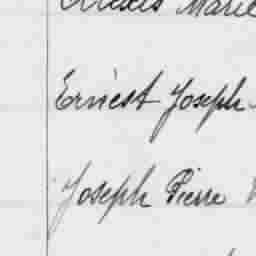 Alexis Marie
Ernest Joseph
Joseph Pierre